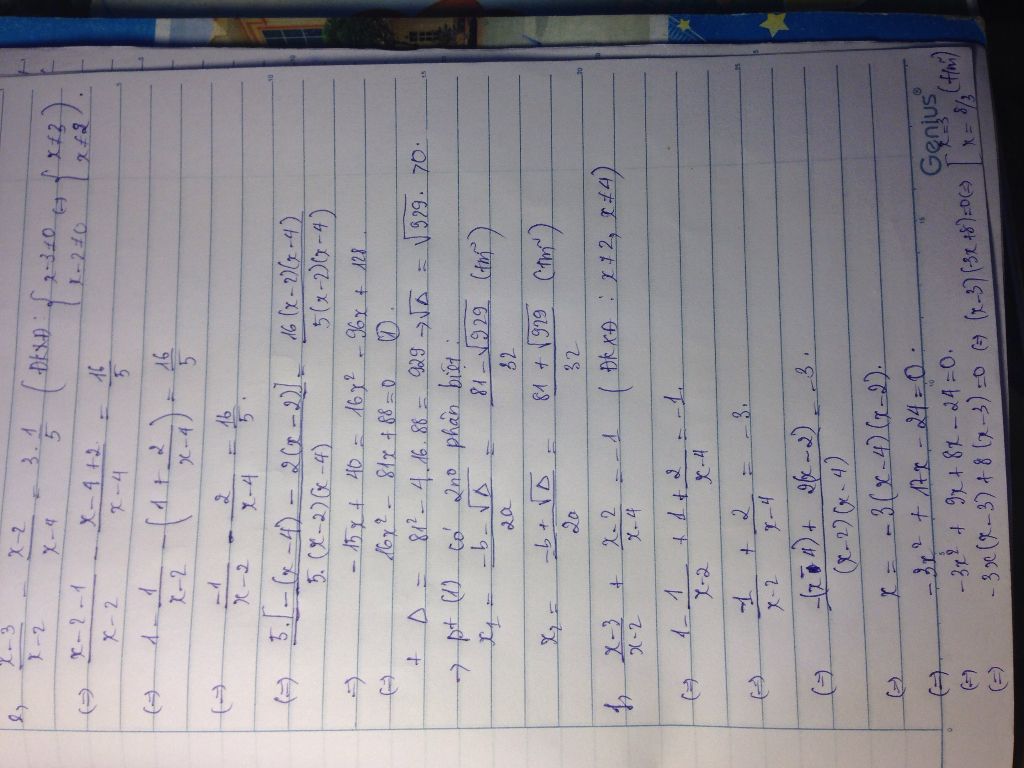 e, x-3/x-2 - x-2/x-4 = 3.1/5 (ĐKXĐ: { x-3≠0 x-2≠0 (=) { x≠3 x≠2 ).
(=) x-2-1/x-2 - x-4+2/x-4 = 16/5
(=) 1 - 1/x-2 - (1 + 2/x-4) = 16/5
(=) -1/x-2 - 2/x-4 = 16/5.
(=) 5.[-(x-4) - 2(x-2)]/5.(x-2)(x-4) = 16(x-2)(x-4)/5(x-2)(x-4)
=) -15x + 40 = 16x² - 96x + 128
(=) 16x² - 81x + 88 = 0 (1).
+ Δ = 81² - 4.16.88 = 929 → √Δ = √929. 70.
→ pt (1) có 2no phân biệt:
x₁ = -b-√Δ/2a = 81-√929/32 (tm)
x₂ = -b+√Δ/2a = 81+√929/32 (tm)
f, x-3/x-2 + x-2/x-4 = -1 (ĐKXĐ: x≠2, x≠4)
(=) 1 - 1/x-2 + 1 + 2/x-4 = -1.
(=) -1/x-2 + 2/x-4 = -3.
(=) -(x-4) + 2(x-2)/(x-2)(x-4) = -3.
(=) x = -3(x-4)(x-2).
(=) -3x² + 17x - 24 = 0.
(=) -3x² + 9x + 8x - 24 = 0.
(=) -3x(x-3) + 8(x-3) = 0 (=) (x-3)(-3x+8) = 0 (=) [ x = 3 x = 8/3 (tm)
Genius®